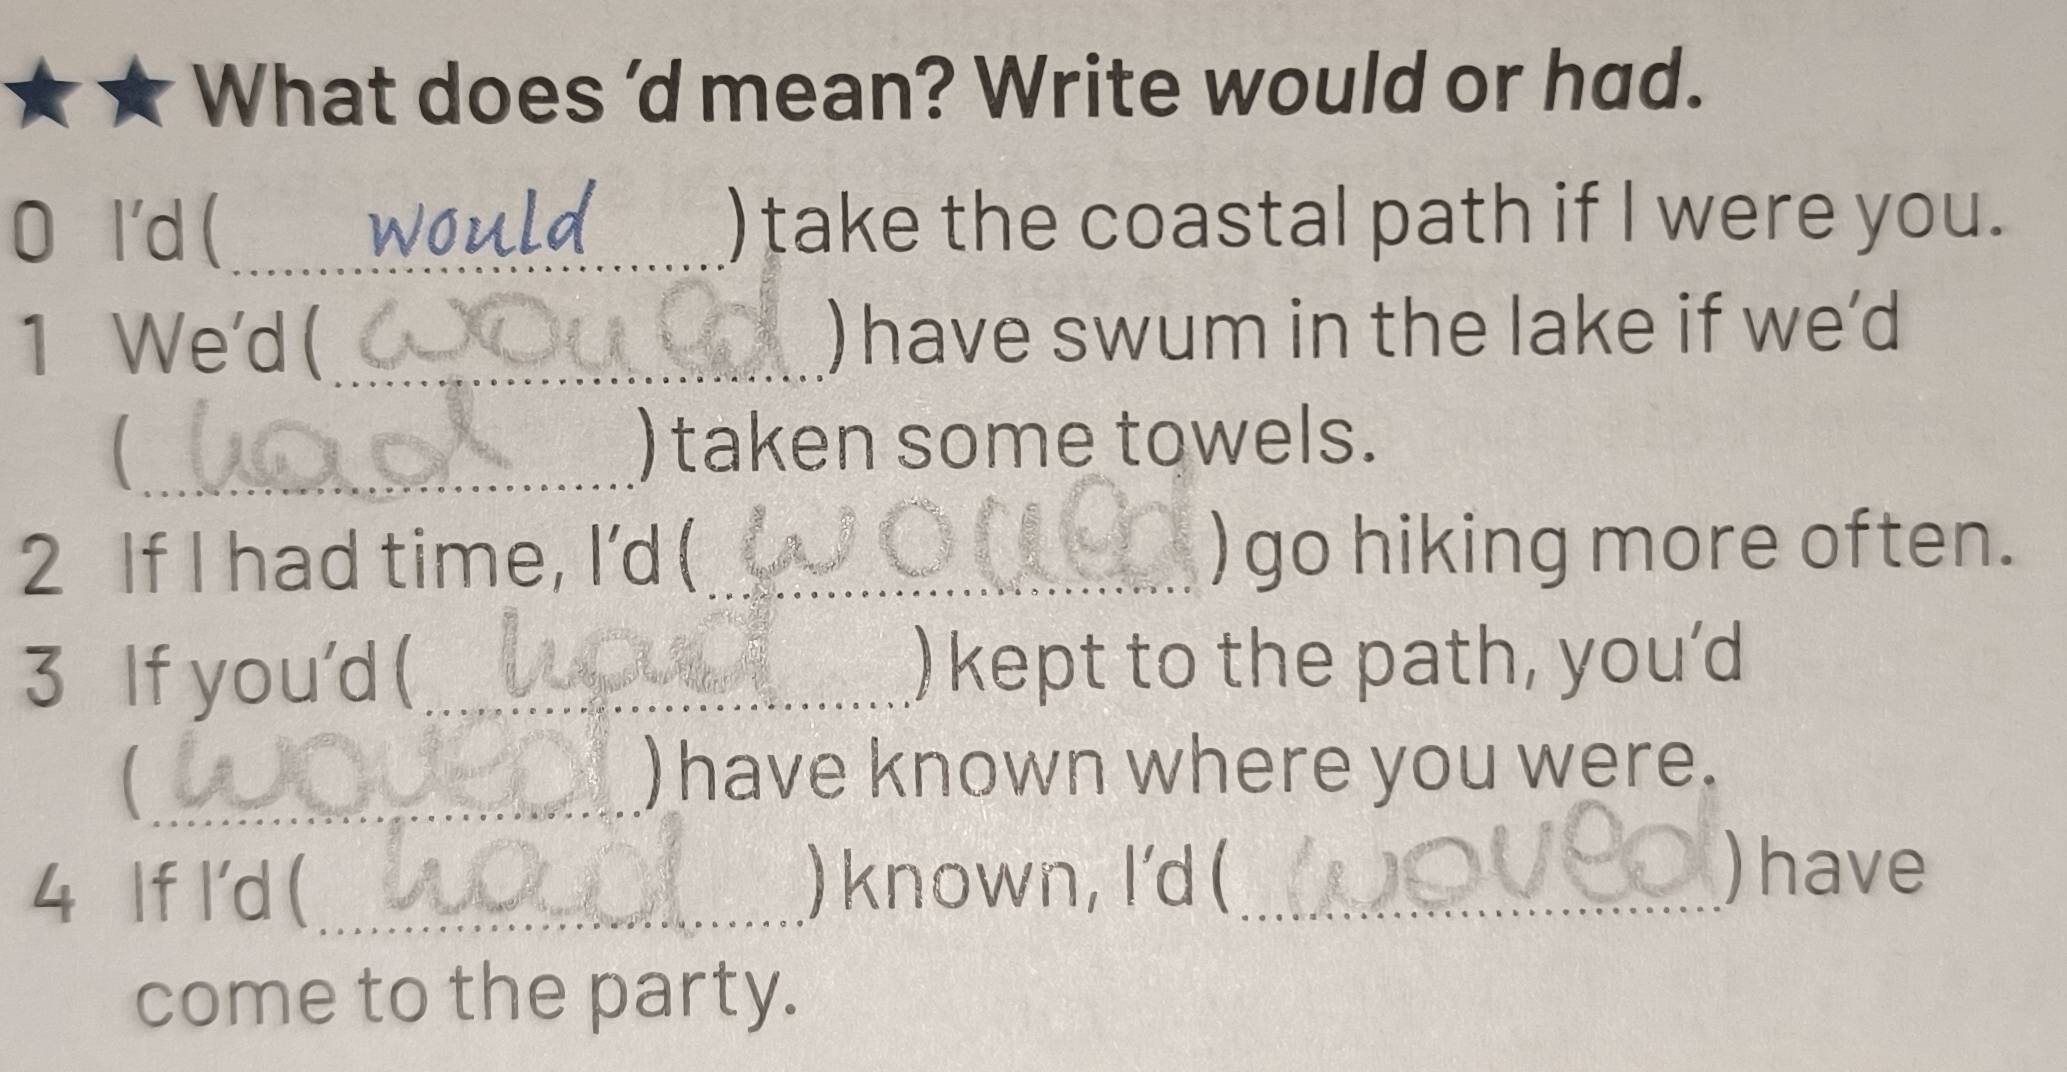 ★★ What does 'd mean? Write would or had.
0 I'd ( would ) take the coastal path if I were you.
1 We'd ( would ) have swum in the lake if we'd
( had ) taken some towels.
2 If I had time, I'd ( would ) go hiking more often.
3 If you'd ( had ) kept to the path, you'd
( would ) have known where you were.
4 If I'd ( had ) known, I'd ( would ) have
come to the party.